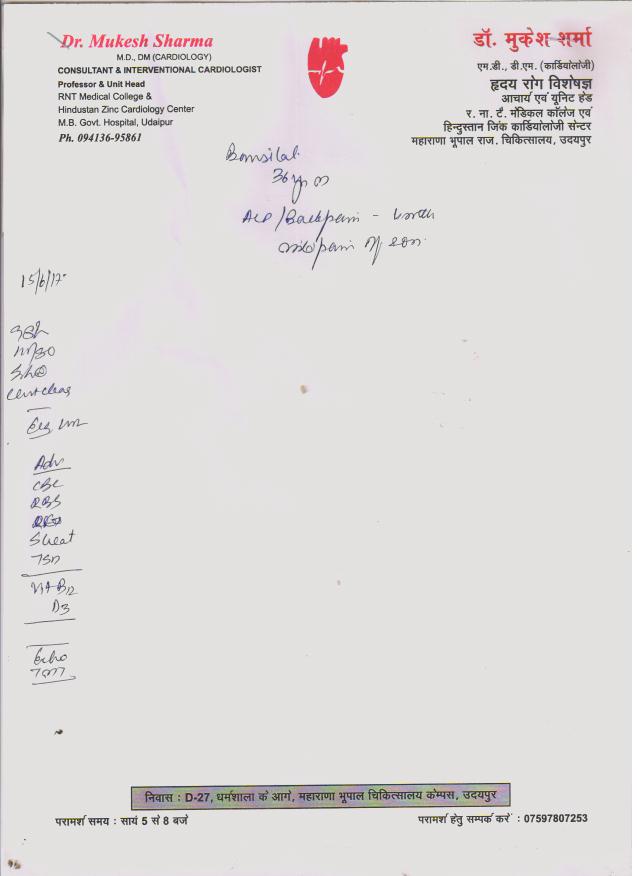 Dr. Mukesh Sharma
M.D., DM (CARDIOLOGY)
CONSULTANT & INTERVENTIONAL CARDIOLOGIST
Professor & Unit Head
RNT Medical College &
Hindustan Zinc Cardiology Center
M.B. Govt. Hospital, Udaipur
Ph. 094136-95861
डॉ. मुकेश शर्मा
एम.डी., डी.एम. (कार्डियोलॉजी)
हृदय रोग विशेषज्ञ
आचार्य एवं यूनिट हेड
र. ना. टै. मेडिकल कॉलेज एवं
हिन्दुस्तान जिंक कार्डियोलॉजी सेन्टर
महाराणा भूपाल राज. चिकित्सालय, उदयपुर
36 yr m
/Backpain -
15/6/17
Adv
CBC
RBS
TSH
Vit B12
D3
Echo
TMT
निवास : D-27, धर्मशाला के आगे, महाराणा भूपाल चिकित्सालय केम्पस, उदयपुर
परामर्श समय : सायं 5 से 8 बजे
परामर्श हेतु सम्पर्क करें : 07597807253